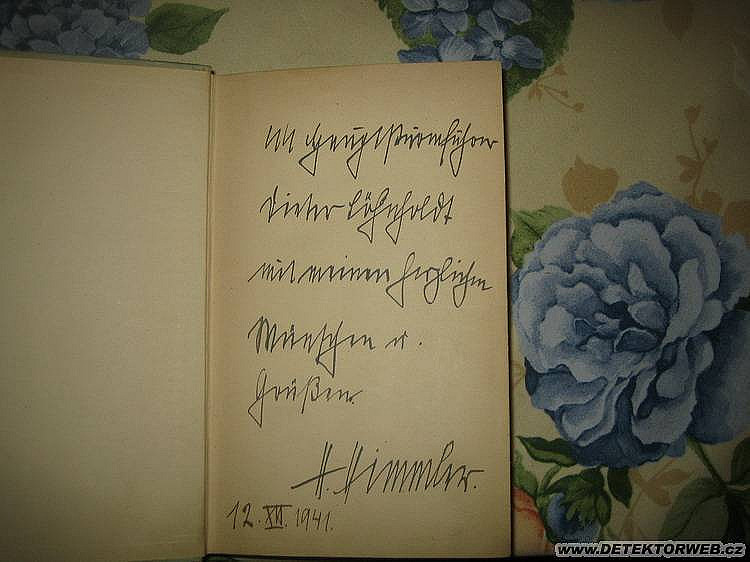 SS Hauptsturmführer
Dieter Löhnholdt
mit meinen herzlichen
Wünschen u.
Grüßen.
H. Himmler.
12. XII. 1941.
www.DETEKTORWEB.cz